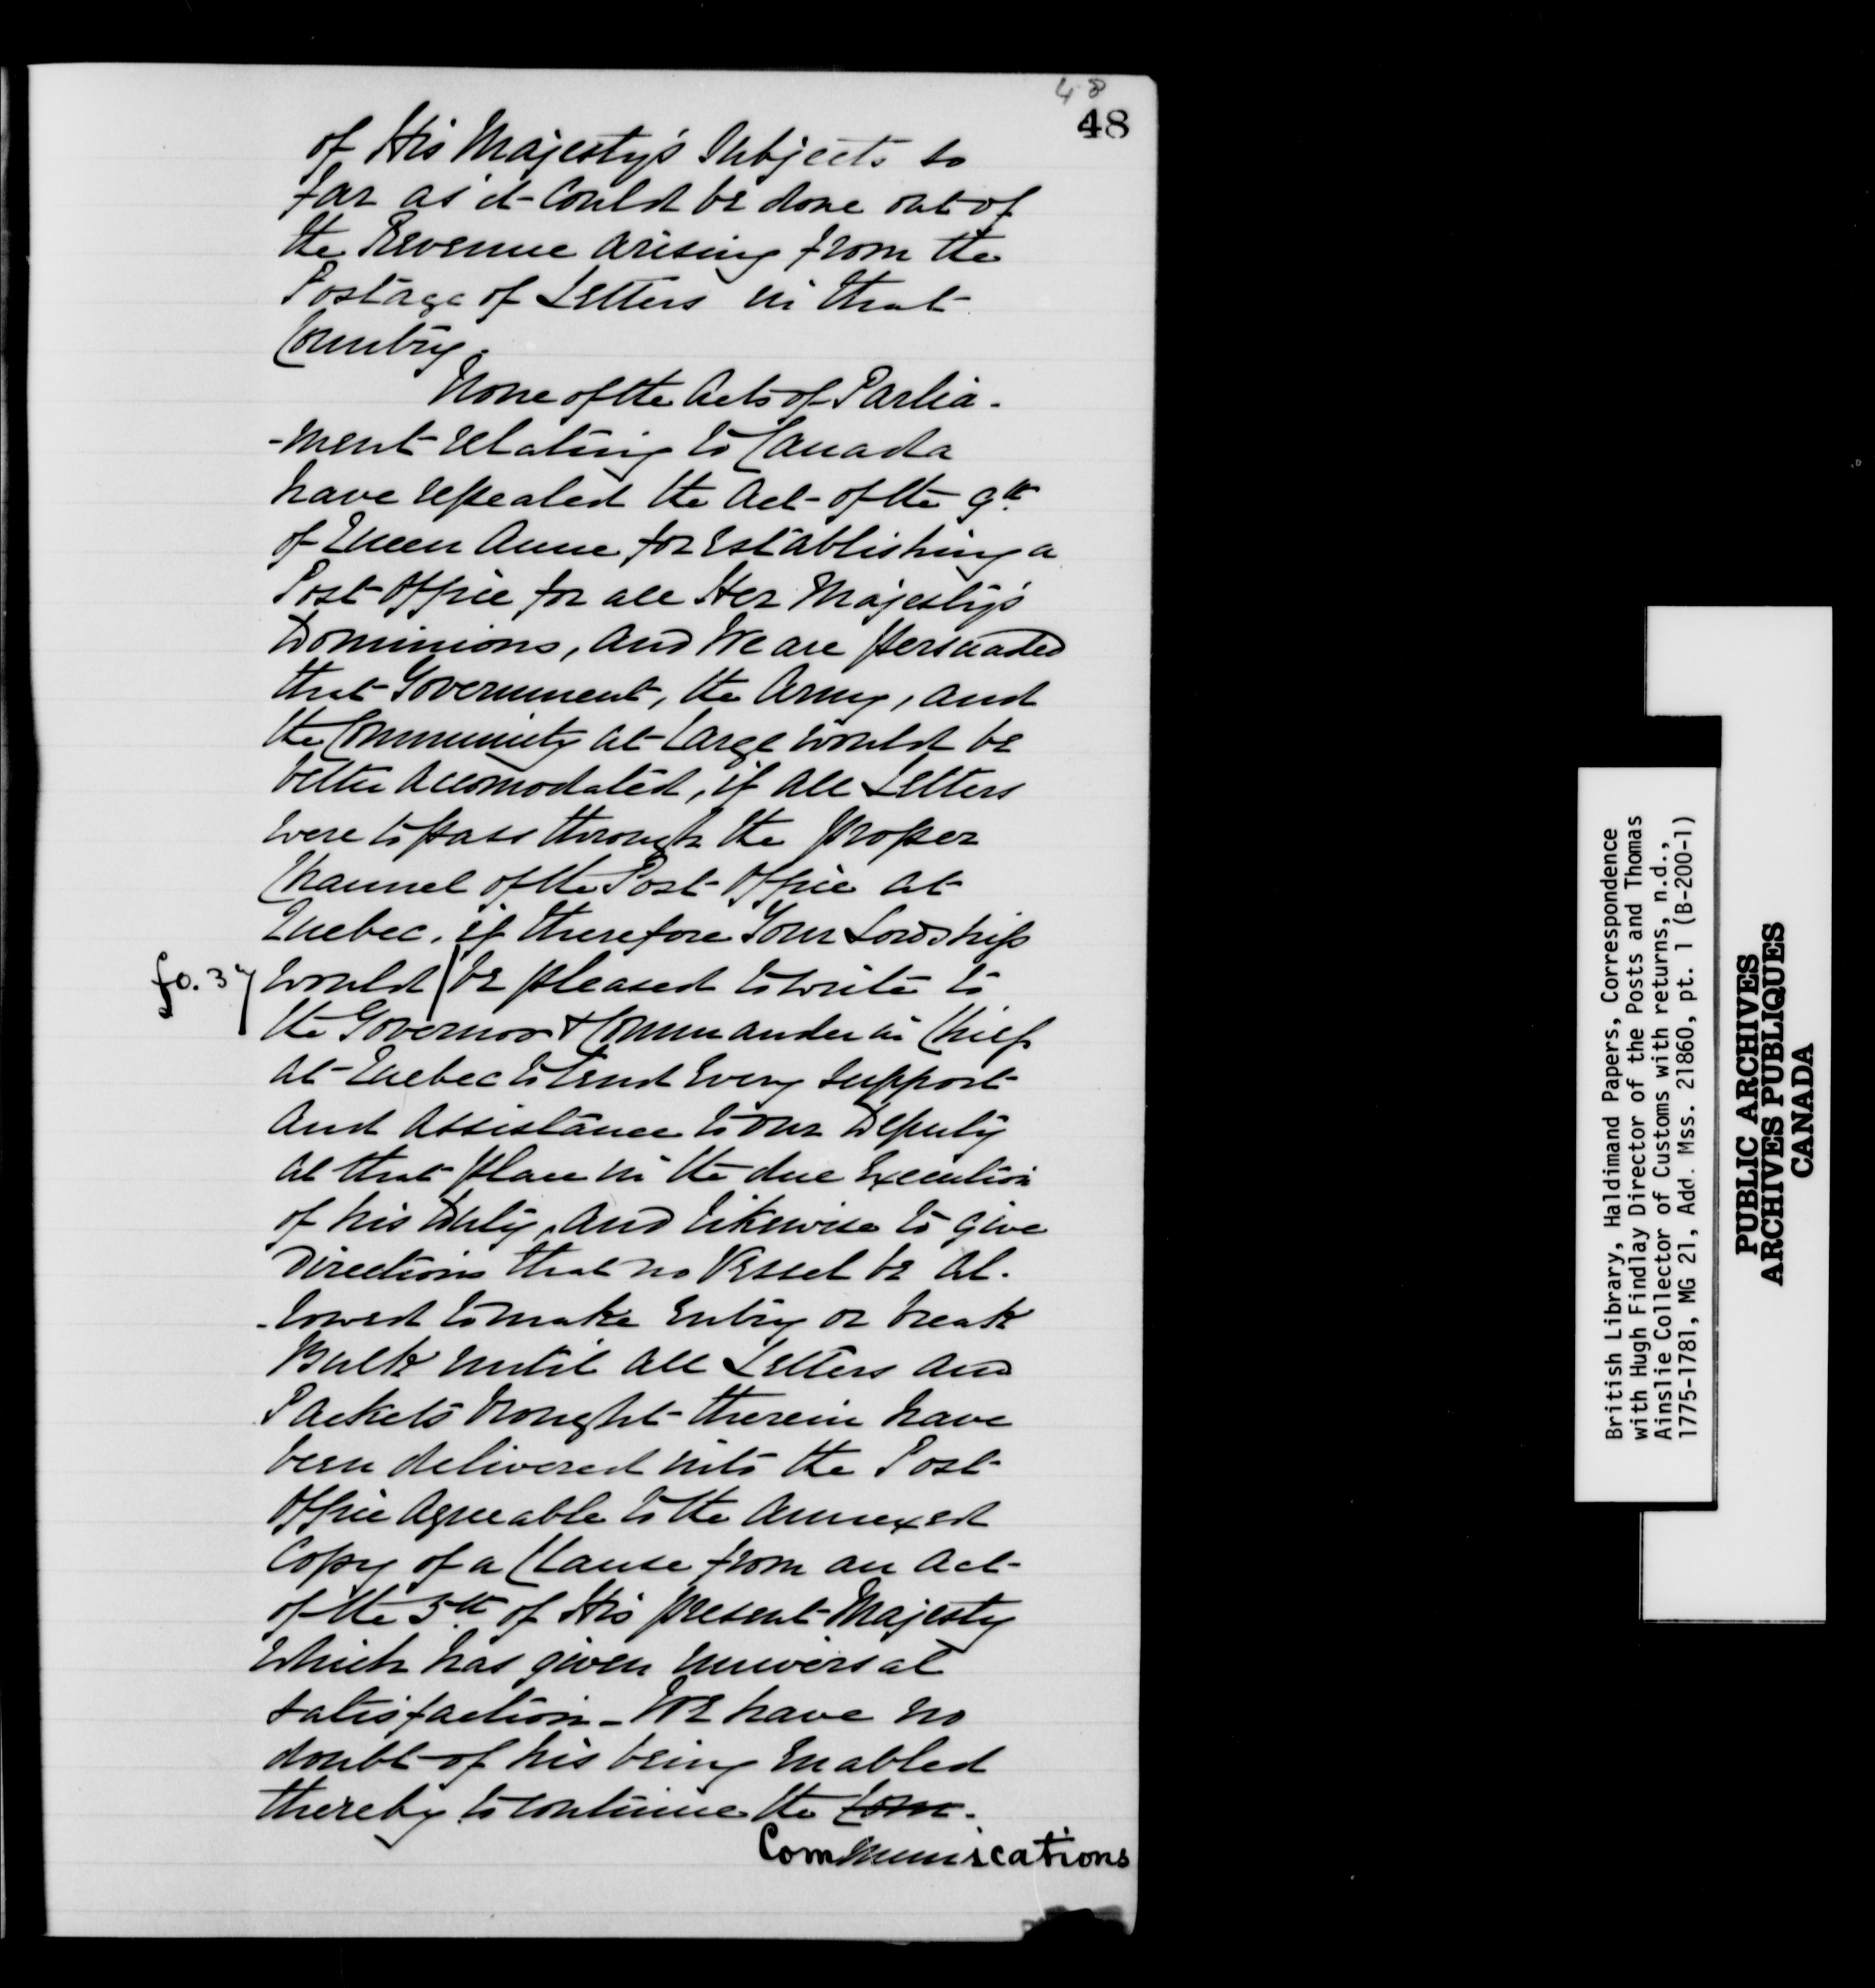 48
48
of His Majesty's Subjects so
far as it could be done out of
the Revenue arising from the
Postage of Letters in that
Country.
None of the Acts of Parlia-
-ment relating to Canada
have repealed the Act of the 9th
of Queen Anne for establishing a
Post Office for all Her Majesty's
Dominions, and We are persuaded
that Government, the Army, and
the Community at Large would be
better accomodated, if all Letters
were to pass through the proper
Channel of the Post Office at
Quebec, if therefore Your Lordship
fo. 37 would / be pleased to write to
the Governor & Commander in Chief
at Quebec to lend every support
and assistance to our Deputy
at that place in the due Execution
of his Duty, and likewise to give
Directions that no Vessel be al-
-lowed to make Entry or break
Bulk until all Letters and
Packets brought therein have
been delivered into the Post
Office agreeable to the annexed
Copy of a Clause from an Act
of the 5th of His present Majesty
which has given universal
satisfaction - We have no
doubt of his being enabled
thereby to continue the Com-
Communications
British Library, Haldimand Papers, Correspondence
with Hugh Findlay Director of the Posts and Thomas
Ainslie Collector of Customs with returns, n.d.,
1775-1781, MG 21, Add. Mss. 21860, pt. 1 (B-200-1)
PUBLIC ARCHIVES
ARCHIVES PUBLIQUES
CANADA